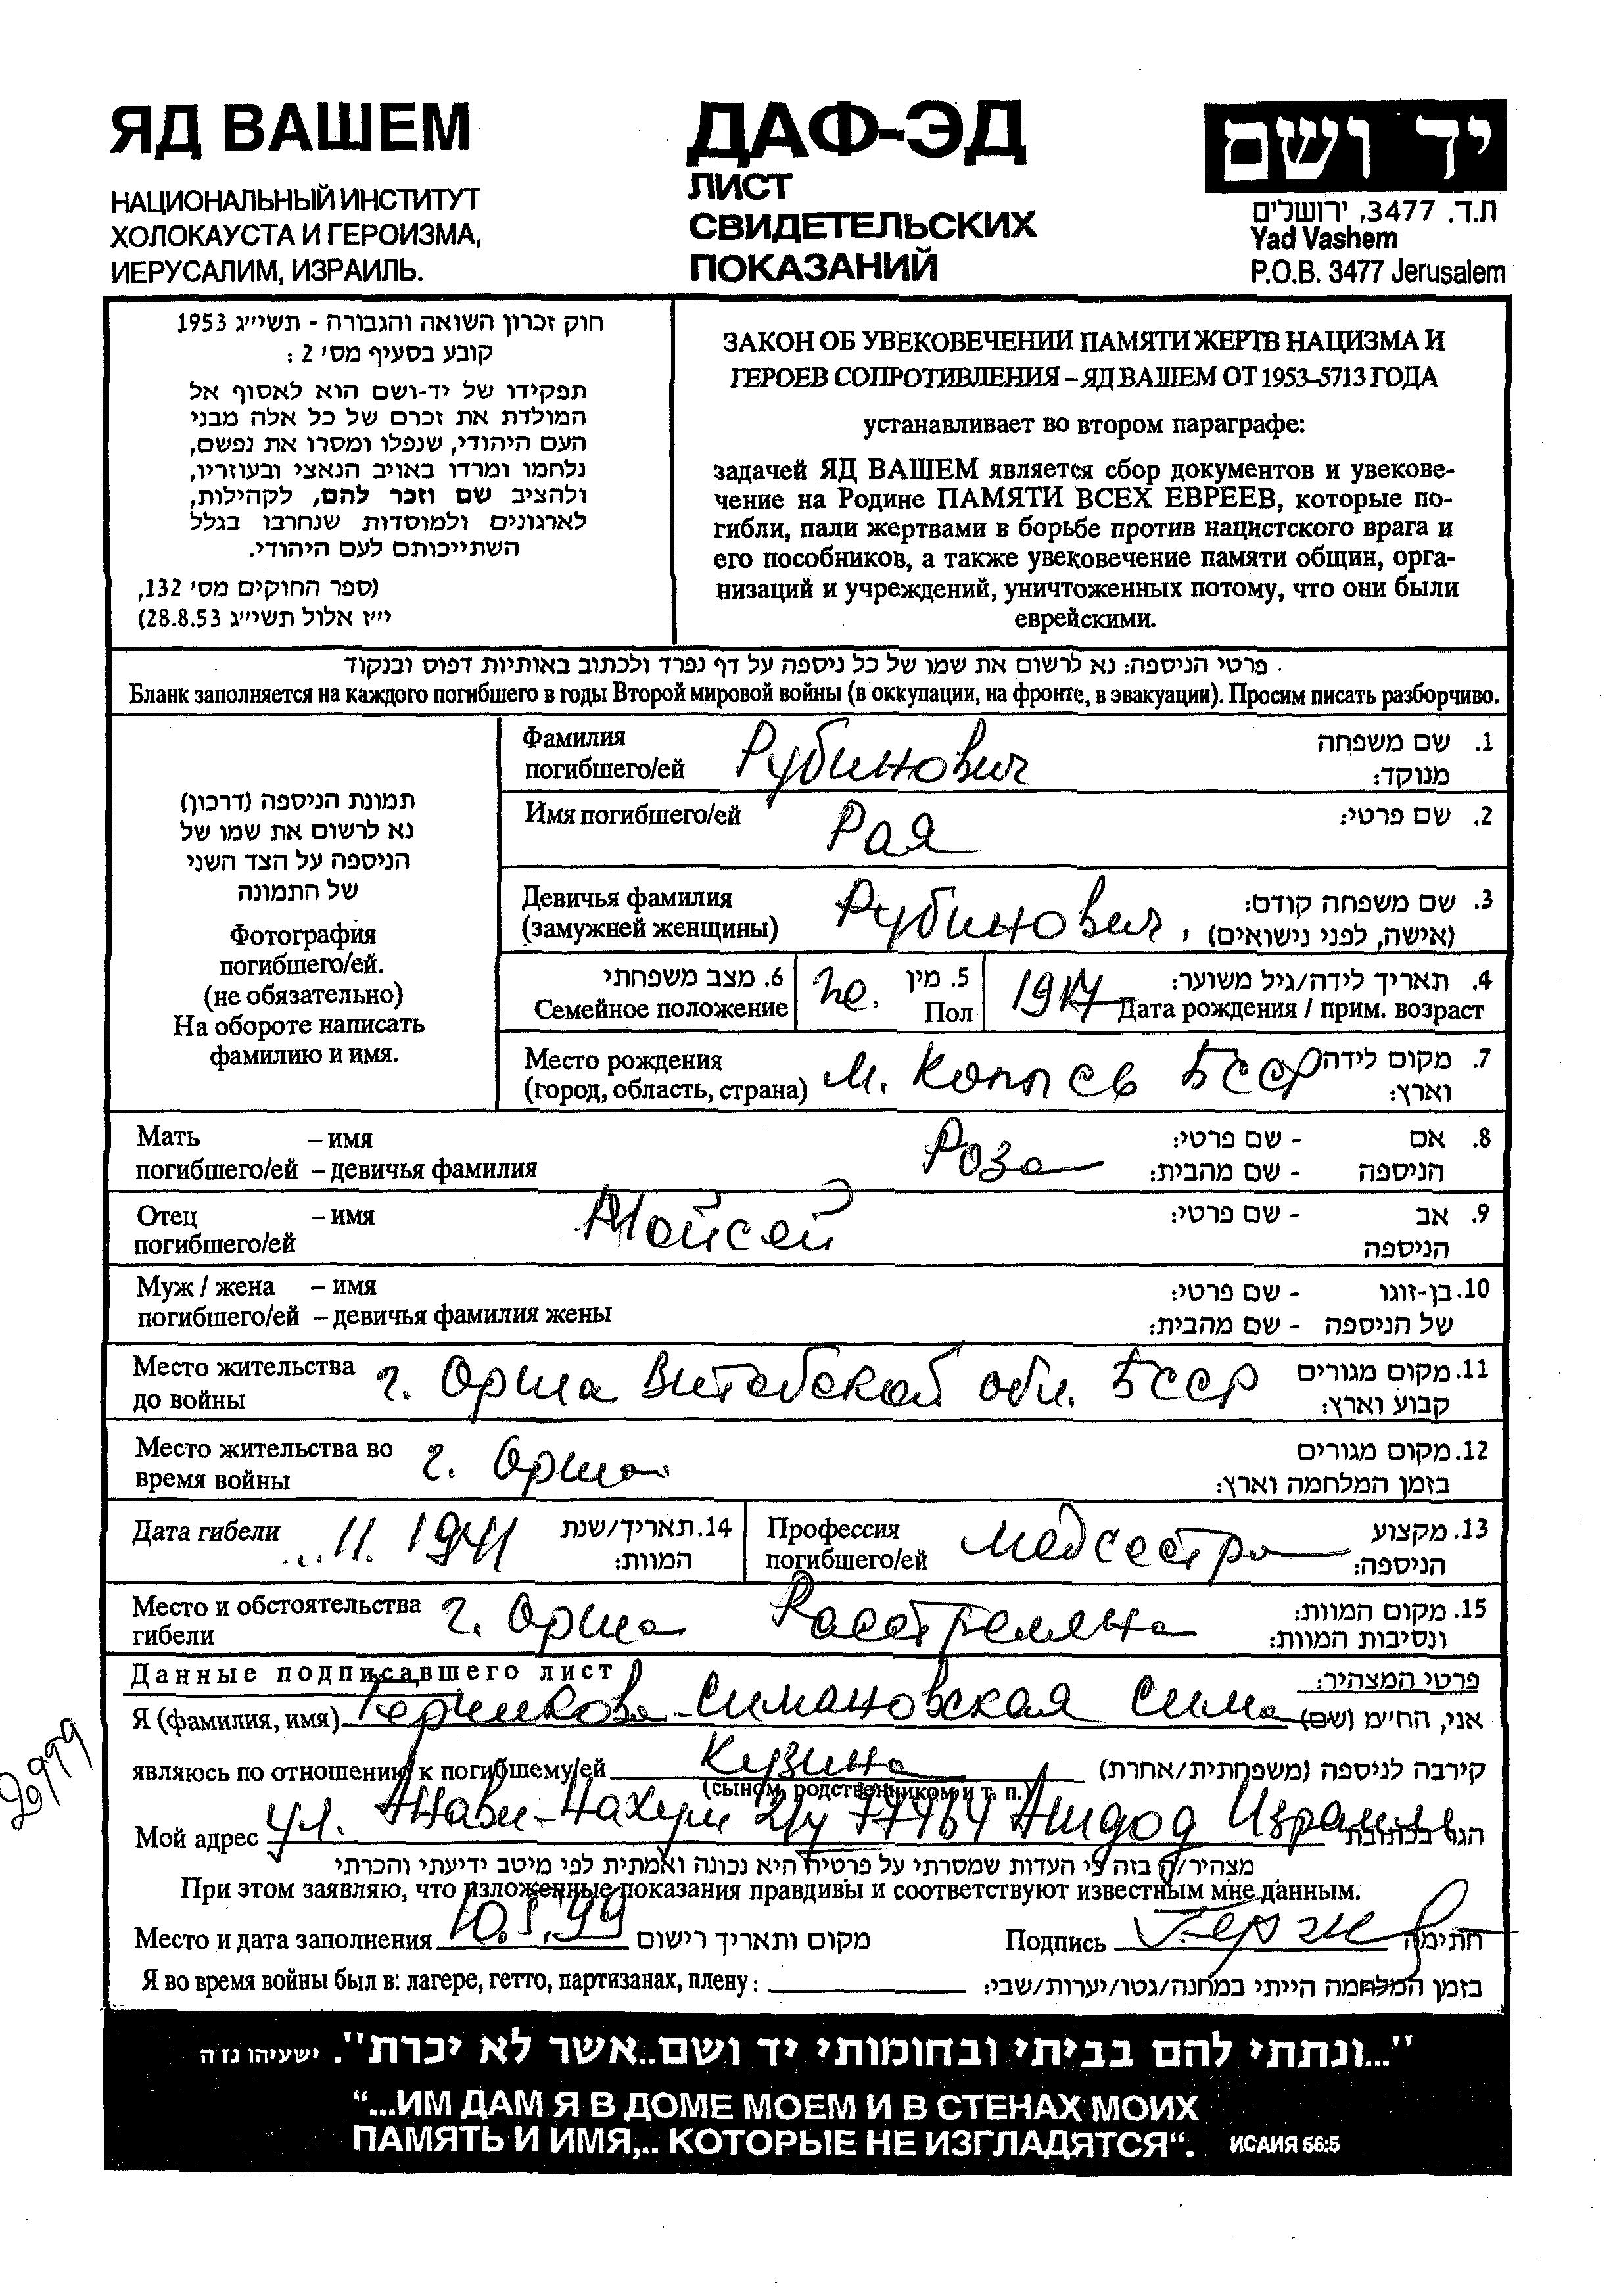 ЯД ВАШЕМ
НАЦИОНАЛЬНЫЙ ИНСТИТУТ
ХОЛОКАУСТА И ГЕРОИЗМА,
ИЕРУСАЛИМ, ИЗРАИЛЬ.
ДАФ-ЭД
ЛИСТ
СВИДЕТЕЛЬСКИХ
ПОКАЗАНИЙ
יד ושם
ת.ד. 3477, ירושלים
Yad Vashem
P.O.B. 3477 Jerusalem
חוק זכרון השואה והגבורה - תשי״ג 1953
קובע בסעיף מס׳ 2 :
תפקידו של יד-ושם הוא לאסוף אל
המולדת את זכרם של כל אלה מבני
העם היהודי, שנפלו ומסרו את נפשם,
נלחמו ומרדו באויב הנאצי ובעוזריו,
ולהציב שם וזכר להם, לקהילות,
לארגונים ולמוסדות שנחרבו בגלל
השתייכותם לעם היהודי.
(ספר החוקים מס׳ 132,
י״ז אלול תשי״ג 28.8.53)
ЗАКОН ОБ УВЕКОВЕЧЕНИИ ПАМЯТИ ЖЕРТВ НАЦИЗМА И
ГЕРОЕВ СОПРОТИВЛЕНИЯ – ЯД ВАШЕМ ОТ 1953-5713 ГОДА
устанавливает во втором параграфе:
задачей ЯД ВАШЕМ является сбор документов и увекове-
чение на Родине ПАМЯТИ ВСЕХ ЕВРЕЕВ, которые по-
гибли, пали жертвами в борьбе против нацистского врага и
его пособников, а также увековечение памяти общин, орга-
низаций и учреждений, уничтоженных потому, что они были
еврейскими.
פרטי הניספה: נא לרשום את שמו של כל ניספה על דף נפרד ולכתוב באותיות דפוס ובנקוד
Бланк заполняется на каждого погибшего в годы Второй мировой войны (в оккупации, на фронте, в эвакуации). Просим писать разборчиво.
תמונת הניספה (דרכון)
נא לרשום את שמו של
הניספה על הצד השני
של התמונה
Фотография
погибшего/ей.
(не обязательно)
На обороте написать
фамилию и имя.
Фамилия Рубинович 1. שם משפחה
погибшего/ей מנוקד:
Имя погибшего/ей Рая 2. שם פרטי:
Девичья фамилия Рубинович 3. שם משפחה קודם:
(замужней женщины) (אישה, לפני נישואים)
6. מצב משפחתי 5. מין 4. תאריך לידה/גיל משוער:
Семейное положение же. Пол 1917 Дата рождения / прим. возраст
Место рождения м. Копысь БССР 7. מקום לידה
(город, область, страна) וארץ:
Мать – имя Роза 8. אם - שם פרטי:
погибшего/ей – девичья фамилия הניספה - שם מהבית:
Отец – имя Мойсей 9. אב - שם פרטי:
погибшего/ей הניספה
Муж / жена – имя 10. בן-זוגו - שם פרטי:
погибшего/ей – девичья фамилия жены של הניספה - שם מהבית:
Место жительства г. Орша Витебской обл. БССР 11. מקום מגורים
до войны קבוע וארץ:
Место жительства во г. Орша 12. מקום מגורים
время войны בזמן המלחמה וארץ:
Дата гибели ...11. 1941 14. תאריך/שנת המוות:
Профессия медсестра 13. מקצוע
погибшего/ей הניספה:
Место и обстоятельства г. Орша Расстреляна 15. מקום המוות:
гибели ונסיבות המוות:
Данные подписавшего лист פרטי המצהיר:
Я (фамилия, имя) Герчикова-Симановская Сима אני, הח״מ (שם)
являюсь по отношению к погибшему/ей Кузина קירבה לניספה (משפחתית/אחרת)
(сыном, родственником и т. п.)
Мой адрес ул. 77464 Ашдод Израиль הגר בכתובת
מצהיר/ה בזה כי העדות שמסרתי על פרטיה היא נכונה ואמתית לפי מיטב ידיעתי והכרתי
При этом заявляю, что изложенные показания правдивы и соответствуют известным мне данным.
Место и дата заполнения 10.5.99 מקום ותאריך רישום Подпись חתימה
Я во время войны был в: лагере, гетто, партизанах, плену: בזמן המלחמה הייתי במחנה/גטו/יערות/שבי:
"...ונתתי להם בביתי ובחומותי יד ושם..אשר לא יכרת". ישעיהו נו ה
“...ИМ ДАМ Я В ДОМЕ МОЕМ И В СТЕНАХ МОИХ
ПАМЯТЬ И ИМЯ,.. КОТОРЫЕ НЕ ИЗГЛАДЯТСЯ“. ИСАИЯ 56:5